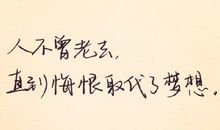 人不曾老去，
直到悔恨取代了梦想。